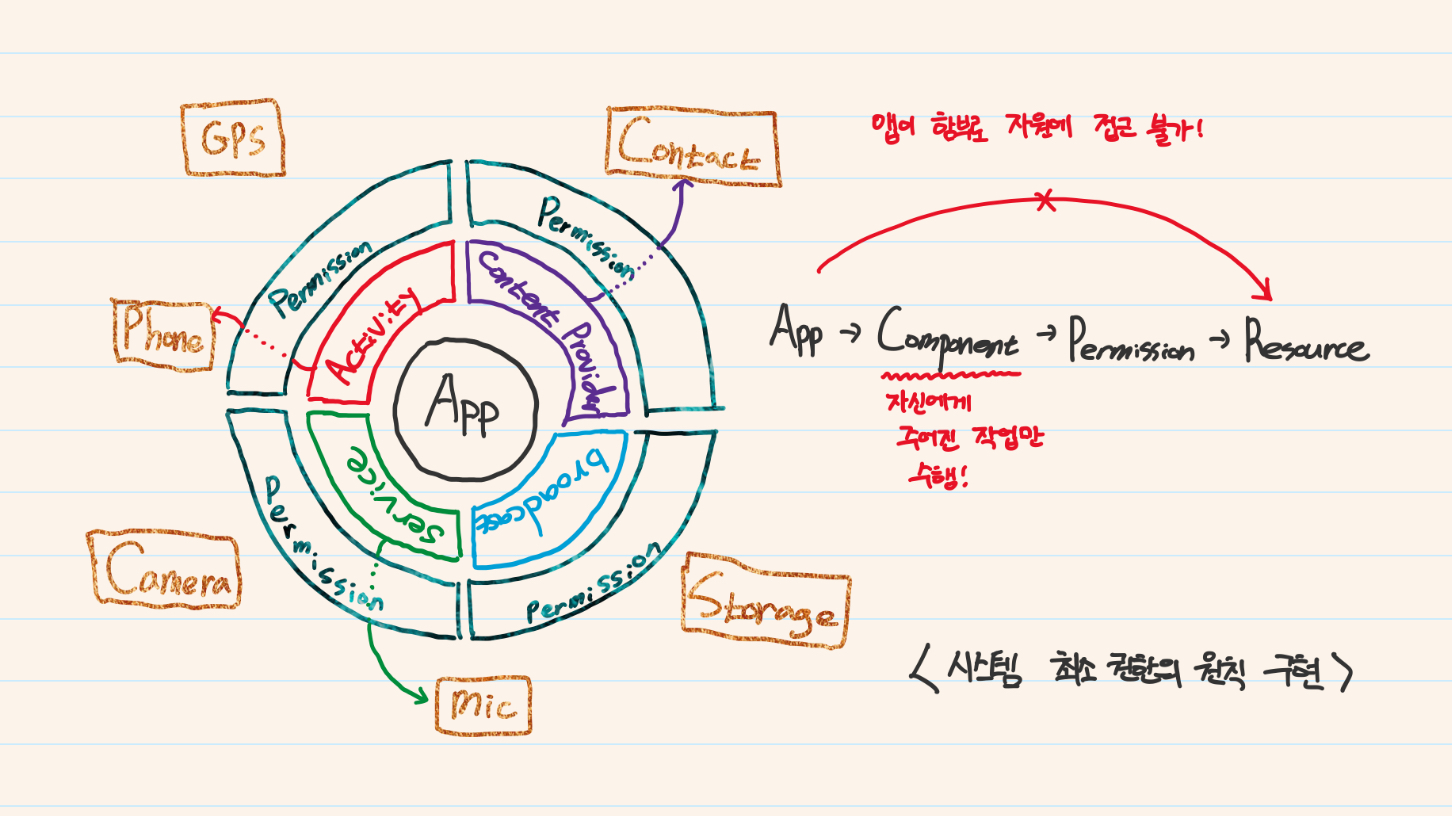 GPS
Contact
앱이 함부로 자원에 접근 불가!
Permission
Permission
Activity
Content Provider
Phone
App
App → Component → Permission → Resource
자신에게
주어진 작업만
수행!
service
broadcast
Permission
Permission
Camera
Storage
Mic
< 시스템 최소 권한의 원칙 구현 >